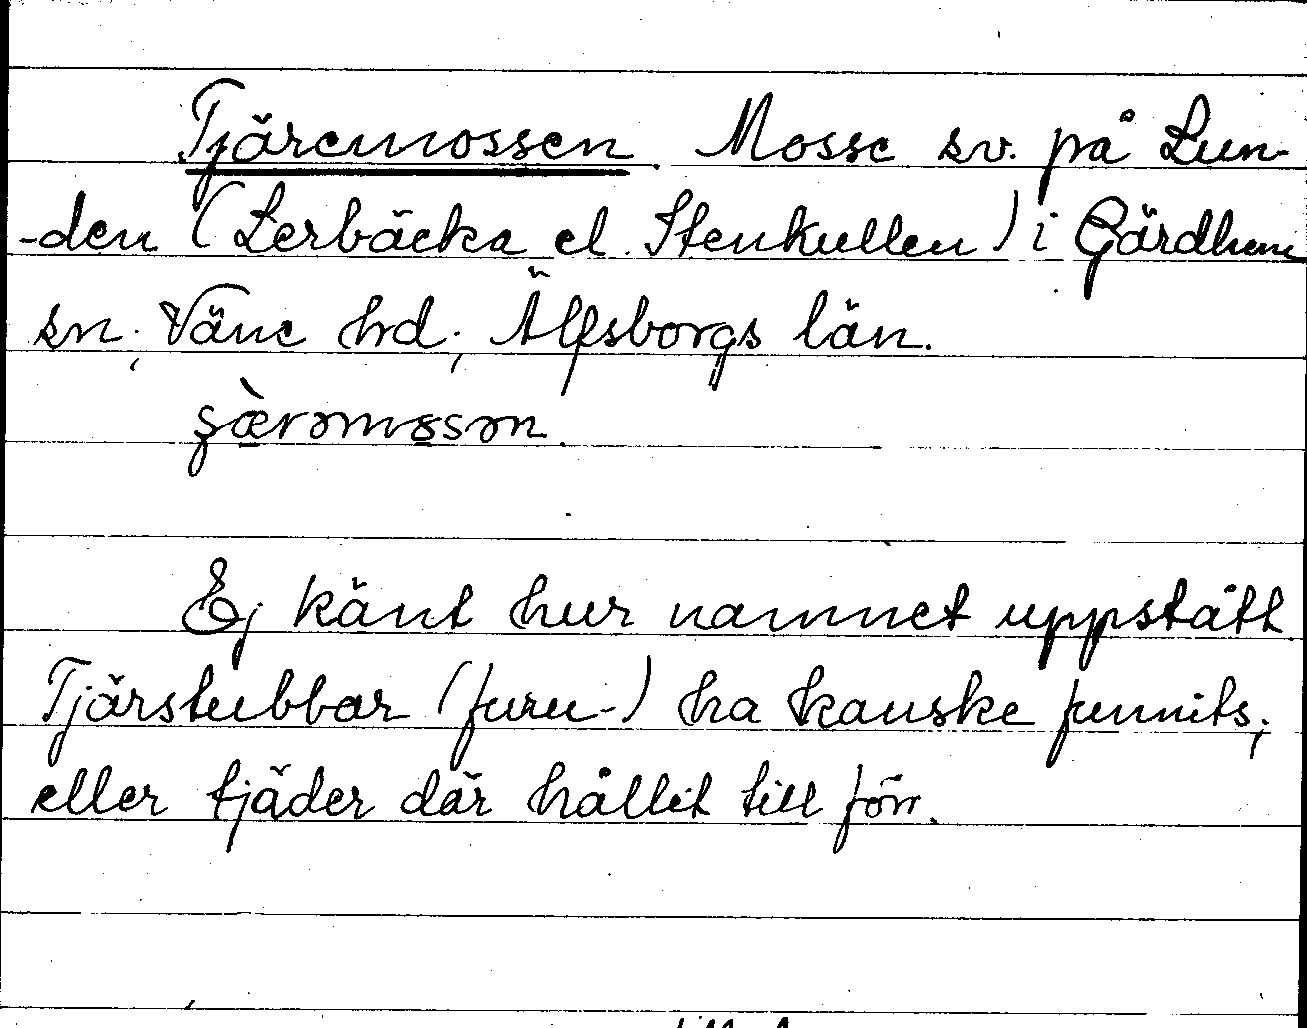 Tjäremossen. Mosse sv. på Lun-
-den (Lerbäcka el. Stenkullen) i Gärdhem
sn, Väne hd, Älfsborgs län.
Ej känt hur namnet uppstått.
Tjärstubbar (furu-) ha kanske funnits,
eller tjäder där hållit till förr.